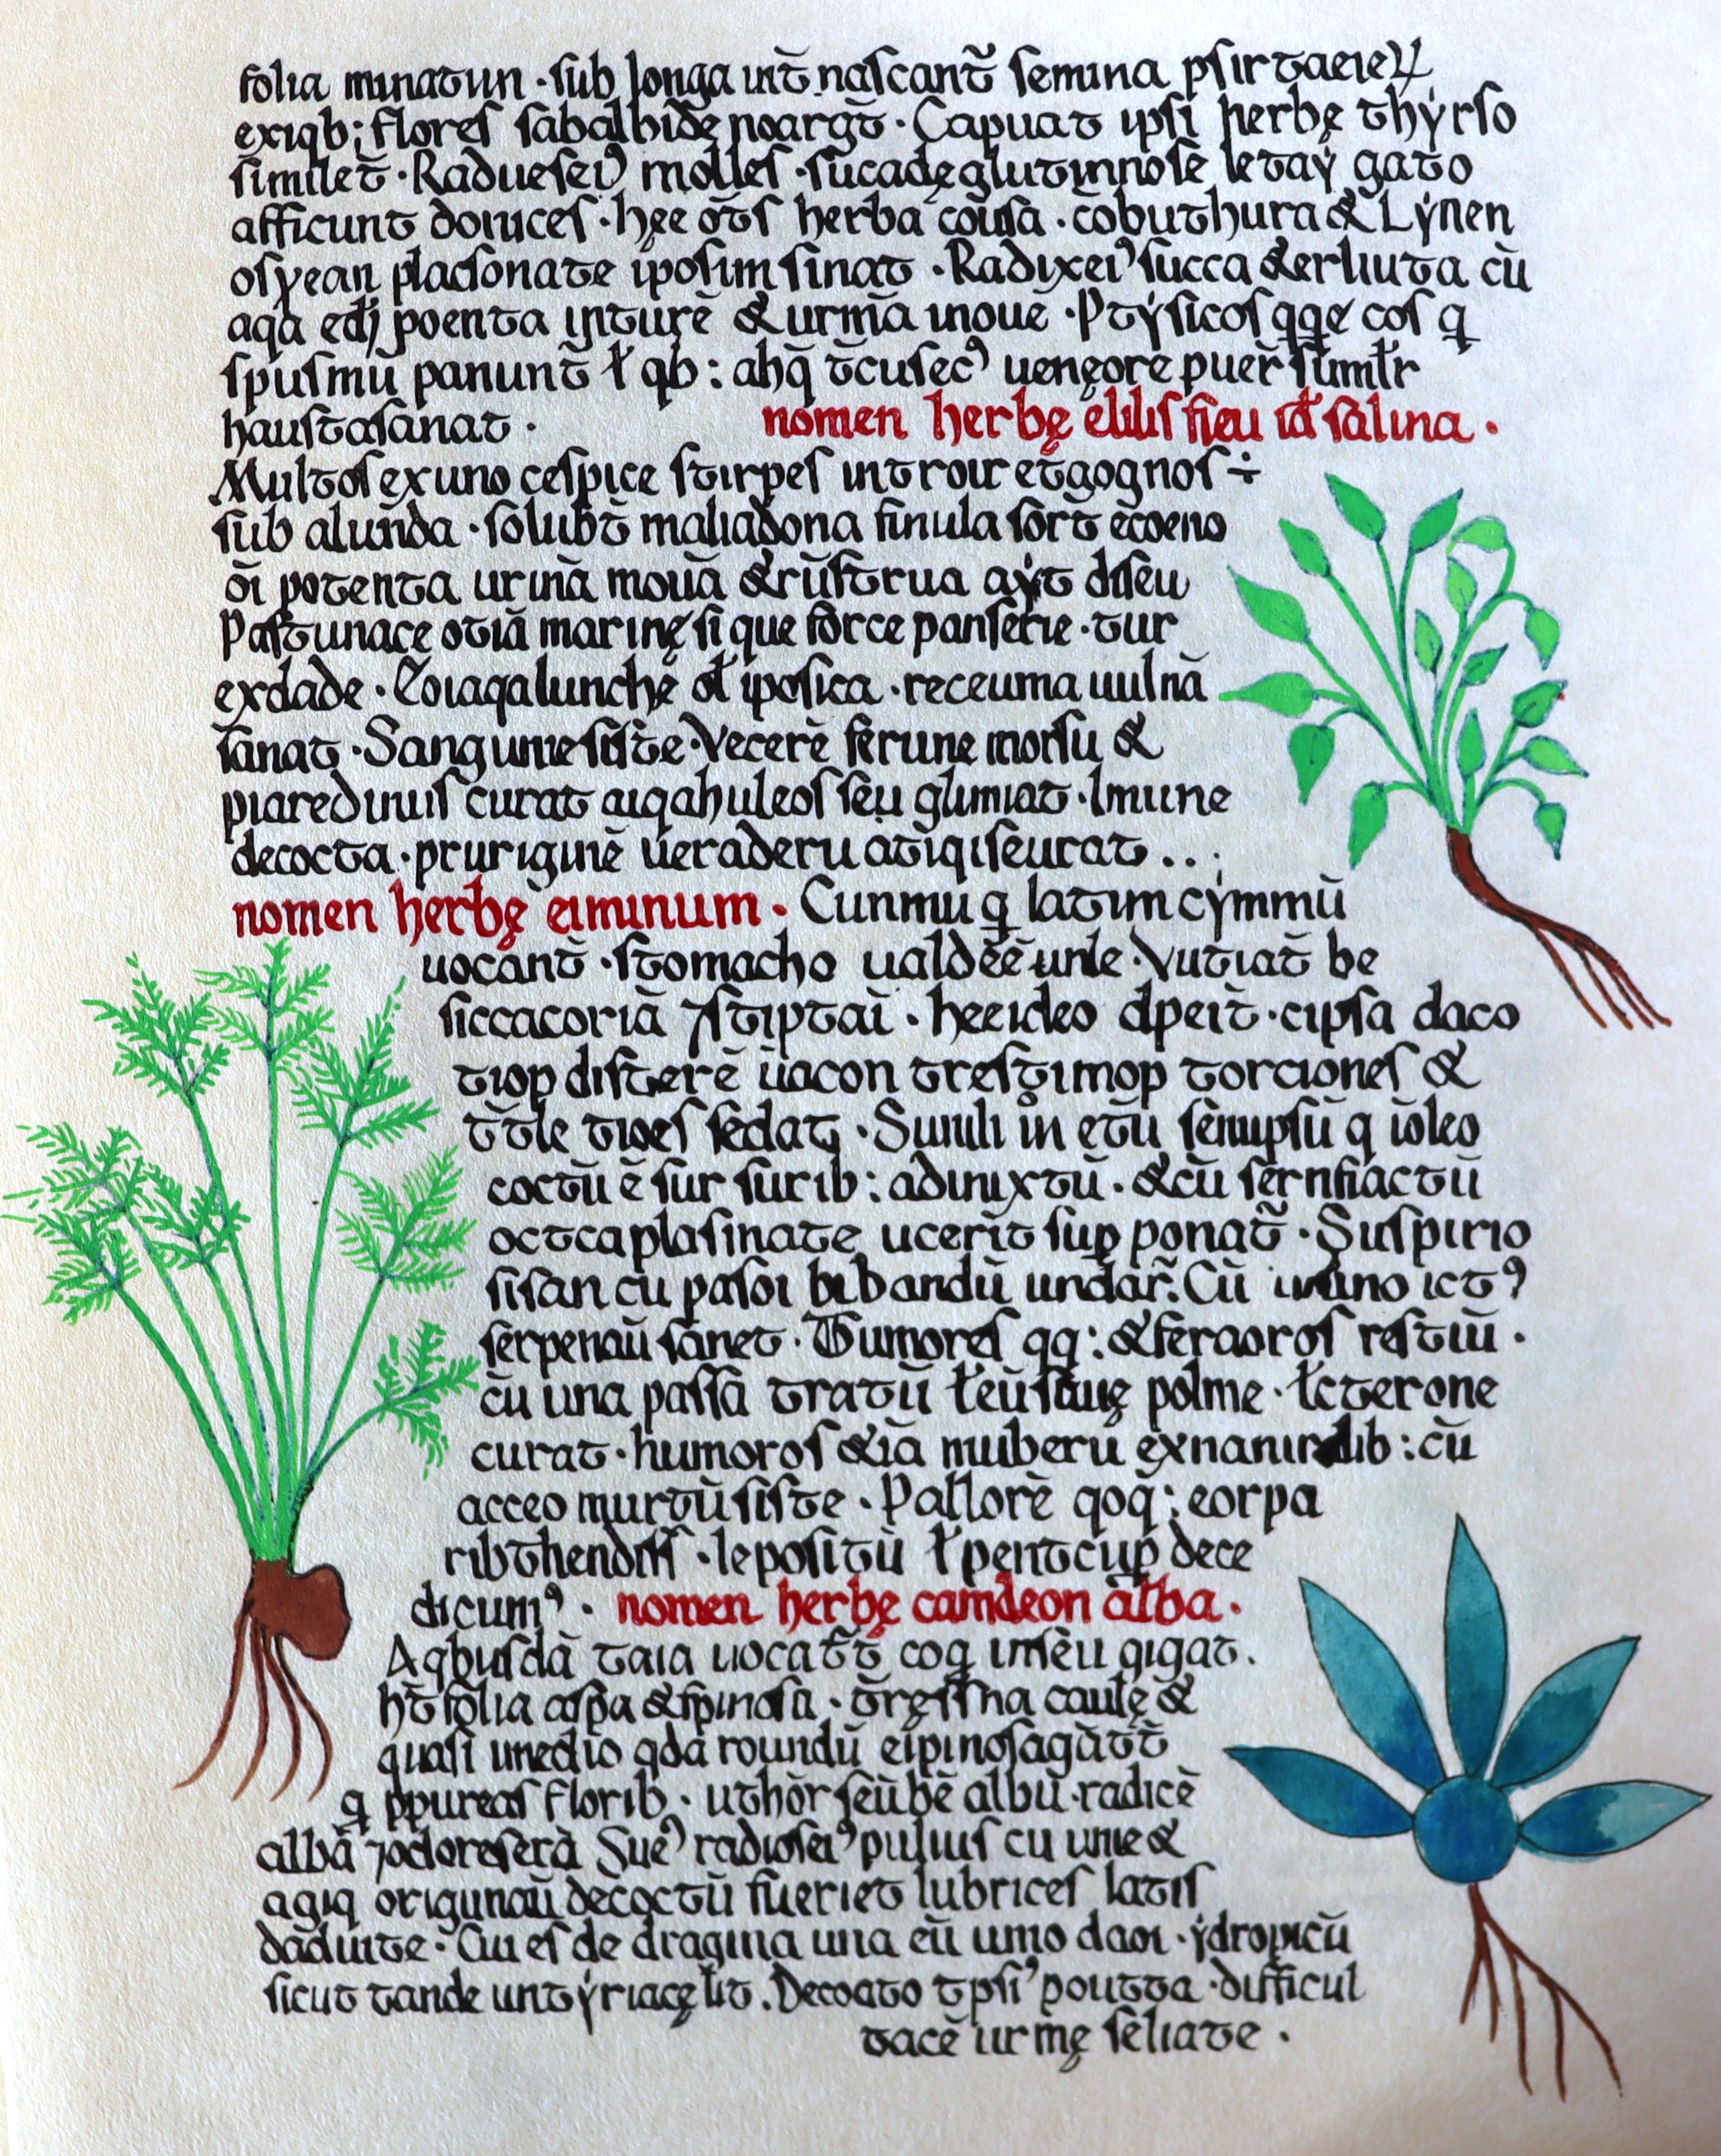 folia minatun · sub longa uit̄ nascant̄ semina psir taeieꝜ
exiqb; flores sabalbidę noargt̄ · Capuat ipsi herbę thẏrso
similet̄ · Radueseiꝰ molles · sucadę glutinnose letaẏ gato
afficunt donices · hęe ōts herba cōusa · cōbuthura & Lẏnen
osyean placsonate iposim sinat · Radixeiꝰ succa & erliuta cū
aqa edij poenta inturē & urmā inouē · Ptẏsicos qqe cos ꝗ
spusmū panunt̄ ł qb : ahq̄ t̄cusecꝰ uengore puer̄ sumłr
haustasanat ·
nomen herbę elilisfieu id salina ·
Multos ex uno cespice stirpes introir et̄gognos ÷
sub aluñda · solubt̄ maliadona finula sort̄ ecoeno
ōi potenta urinā mouā & rūstrua aẏt diseu
Pastunace otiā marinę si que force panserie · tur
exdade · Coiaqalunchę oł iposica · receuma uulnā
sanat · Sangunie siste · Vecerē ferune morsu &
piaredinus curat aiqahuleos seu glimiat · lmune
decocta · pruriginē ueraderu atiqiseurat . . .
nomen herbę eiminum · Cunmu ꝗ latim cẏmmū
uocant̄ · stomacho ualdēē unle · Vutiat̄ be
siccacoriā ⁊stiptaī · heeideo dpeit̄ · cipsa daco
tiop disterē uacon trestimop torciones &
t̄t̄le tioes sedat · Suuli in etū senupsū q ioleo
coctū ē sur surib : adinixtū · & cū sernfiactū
octca plasinate ucerit̄ suꝑ ponat̄ · Suspirio
sisan cu pasoi bibandū undar̄ : Cū unino ictꝰ
serpenaū sanet · Tumores qq : & feraoros restiū ·
cū una passa tratū łeū suuę polme · łcterone
curat · humoros & iā muiberū exnanirdib : cū
acceo murtū siste · Pallorē qoq ; eorpa
ribthendis · lepositū ł pentcuꝑ dece
dicumꝰ · nomen herbę camdeon alba ·
Aqbusdā taia uocatt̄ coq inseu gigat ·
ht̄ folia aspa & spinosa · tręs sna caulę &
quasi unedio qda roundū eipinosagatt̄
ꝗ ppureas florib · uthōr seū bē albū · radicē
albā ⁊odoreserà Sueꝰ radioseiꝰ puluis cu unie &
agiq origunaū decoctū fueriet lubrices latis
daduite · Cui es de dragina una cū uino daoi · ẏdropicū
sicut tande untẏriacęłit . Decoato tpsiꝰ poutta · difficul
tacē urmę seliate ·